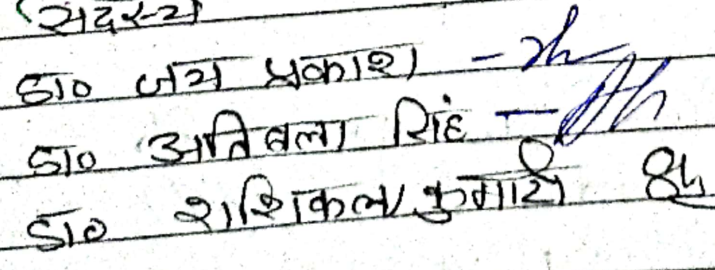 सदस्य
डा० जय प्रकाश -
डा० अतिबला सिंह -
डा० शशिकला कुमारी